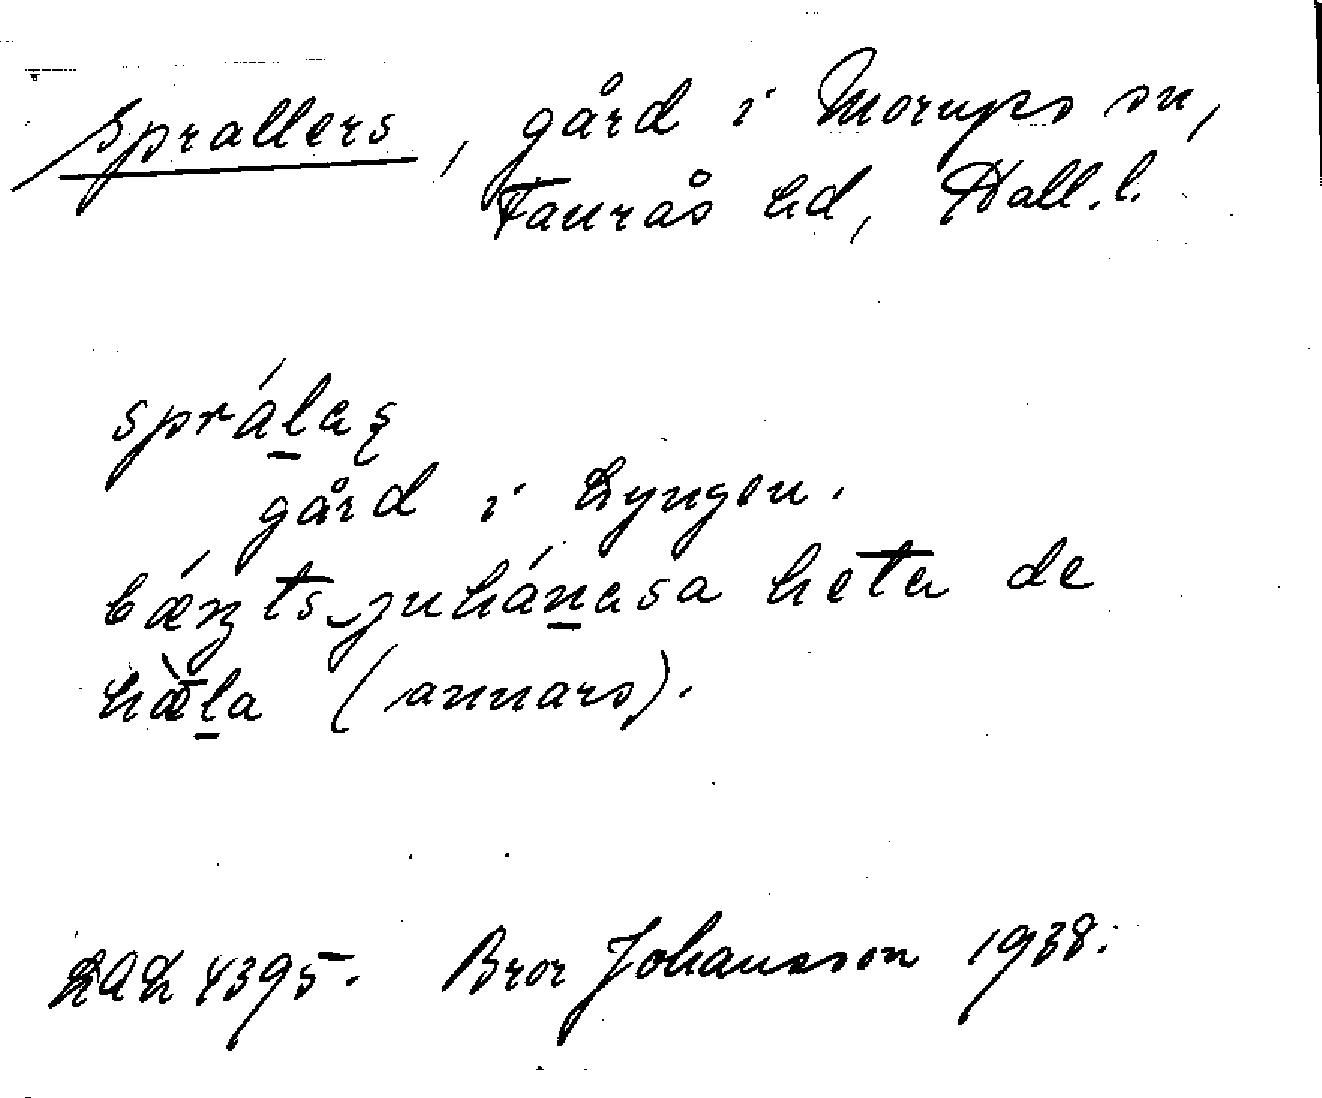 Sprallers, gård i Morups sn,
Faurås hd, Hall.l.
sprálas
gård i Lyngen.
bænts juhánasa heta de
hæ̀la (annars).
LAL 4395. Bror Johansson 1938.